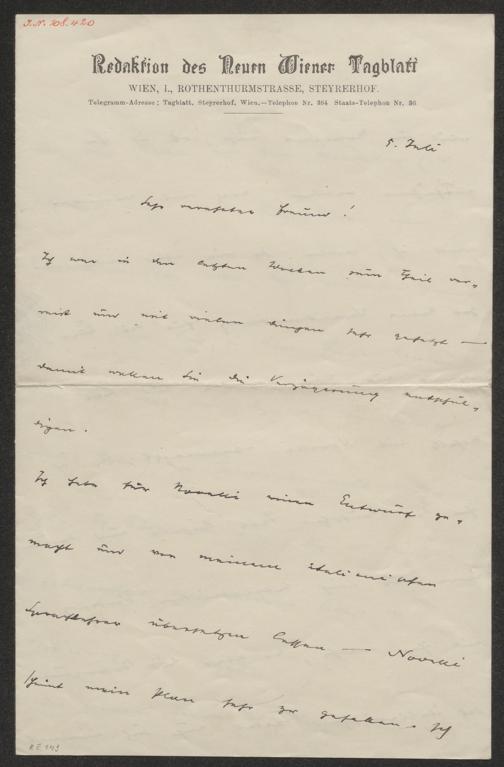 J.N. 208.420
Redaktion des Neuen Wiener Tagblatt
WIEN, I., ROTHENTHURMSTRASSE, STEYRERHOF.
Telegramm-Adresse: Tagblatt, Steyrerhof, Wien.—Telephon Nr. 364 Staats-Telephon Nr. 36
5. Juli
Sehr verehrter Freund!
Ich war in den letzten Wochen zum Theil ver-
reist und mit vielen Dingen sehr gehetzt —
damit wollen Sie die Verzögerung entschul-
digen.
Ich habe für Novelli einen Entwurf ge-
macht und von meinem italienischen
Sprachlehrer übersetzen lassen — Novelli
scheint mein Plan sehr zu gefallen. Ich